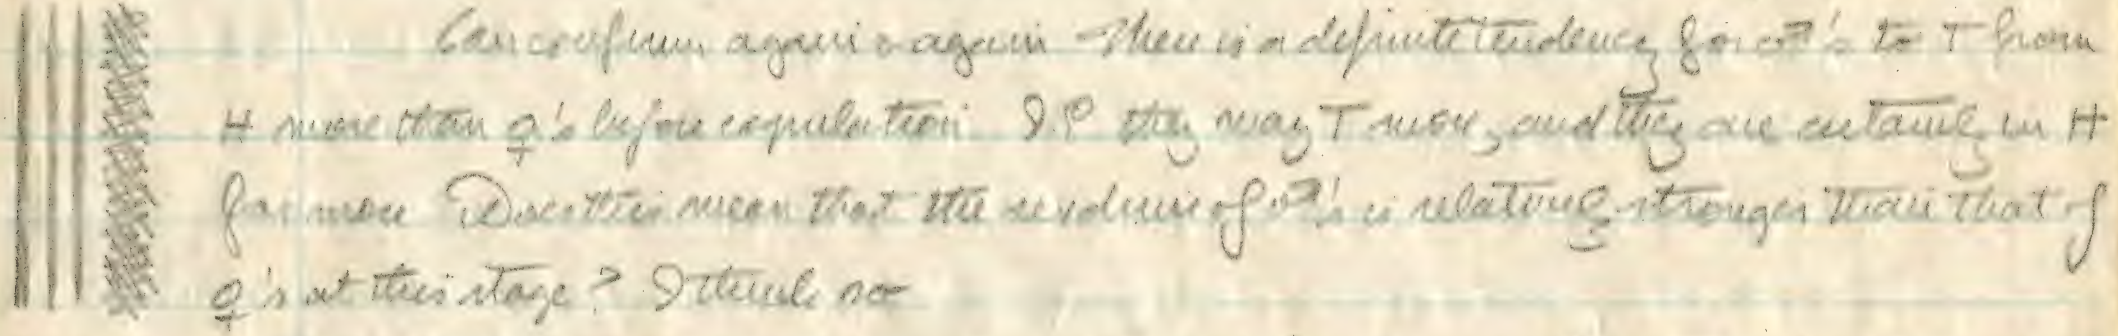 Can confirm again & again There is a definite tendency for ♂'s to T from
H more than ♀'s before copulation I.e they may T more, and they are certainly in H
far more Does this mean that the sex drive of ♂'s is relatively stronger than that of
♀'s at this stage? I think so